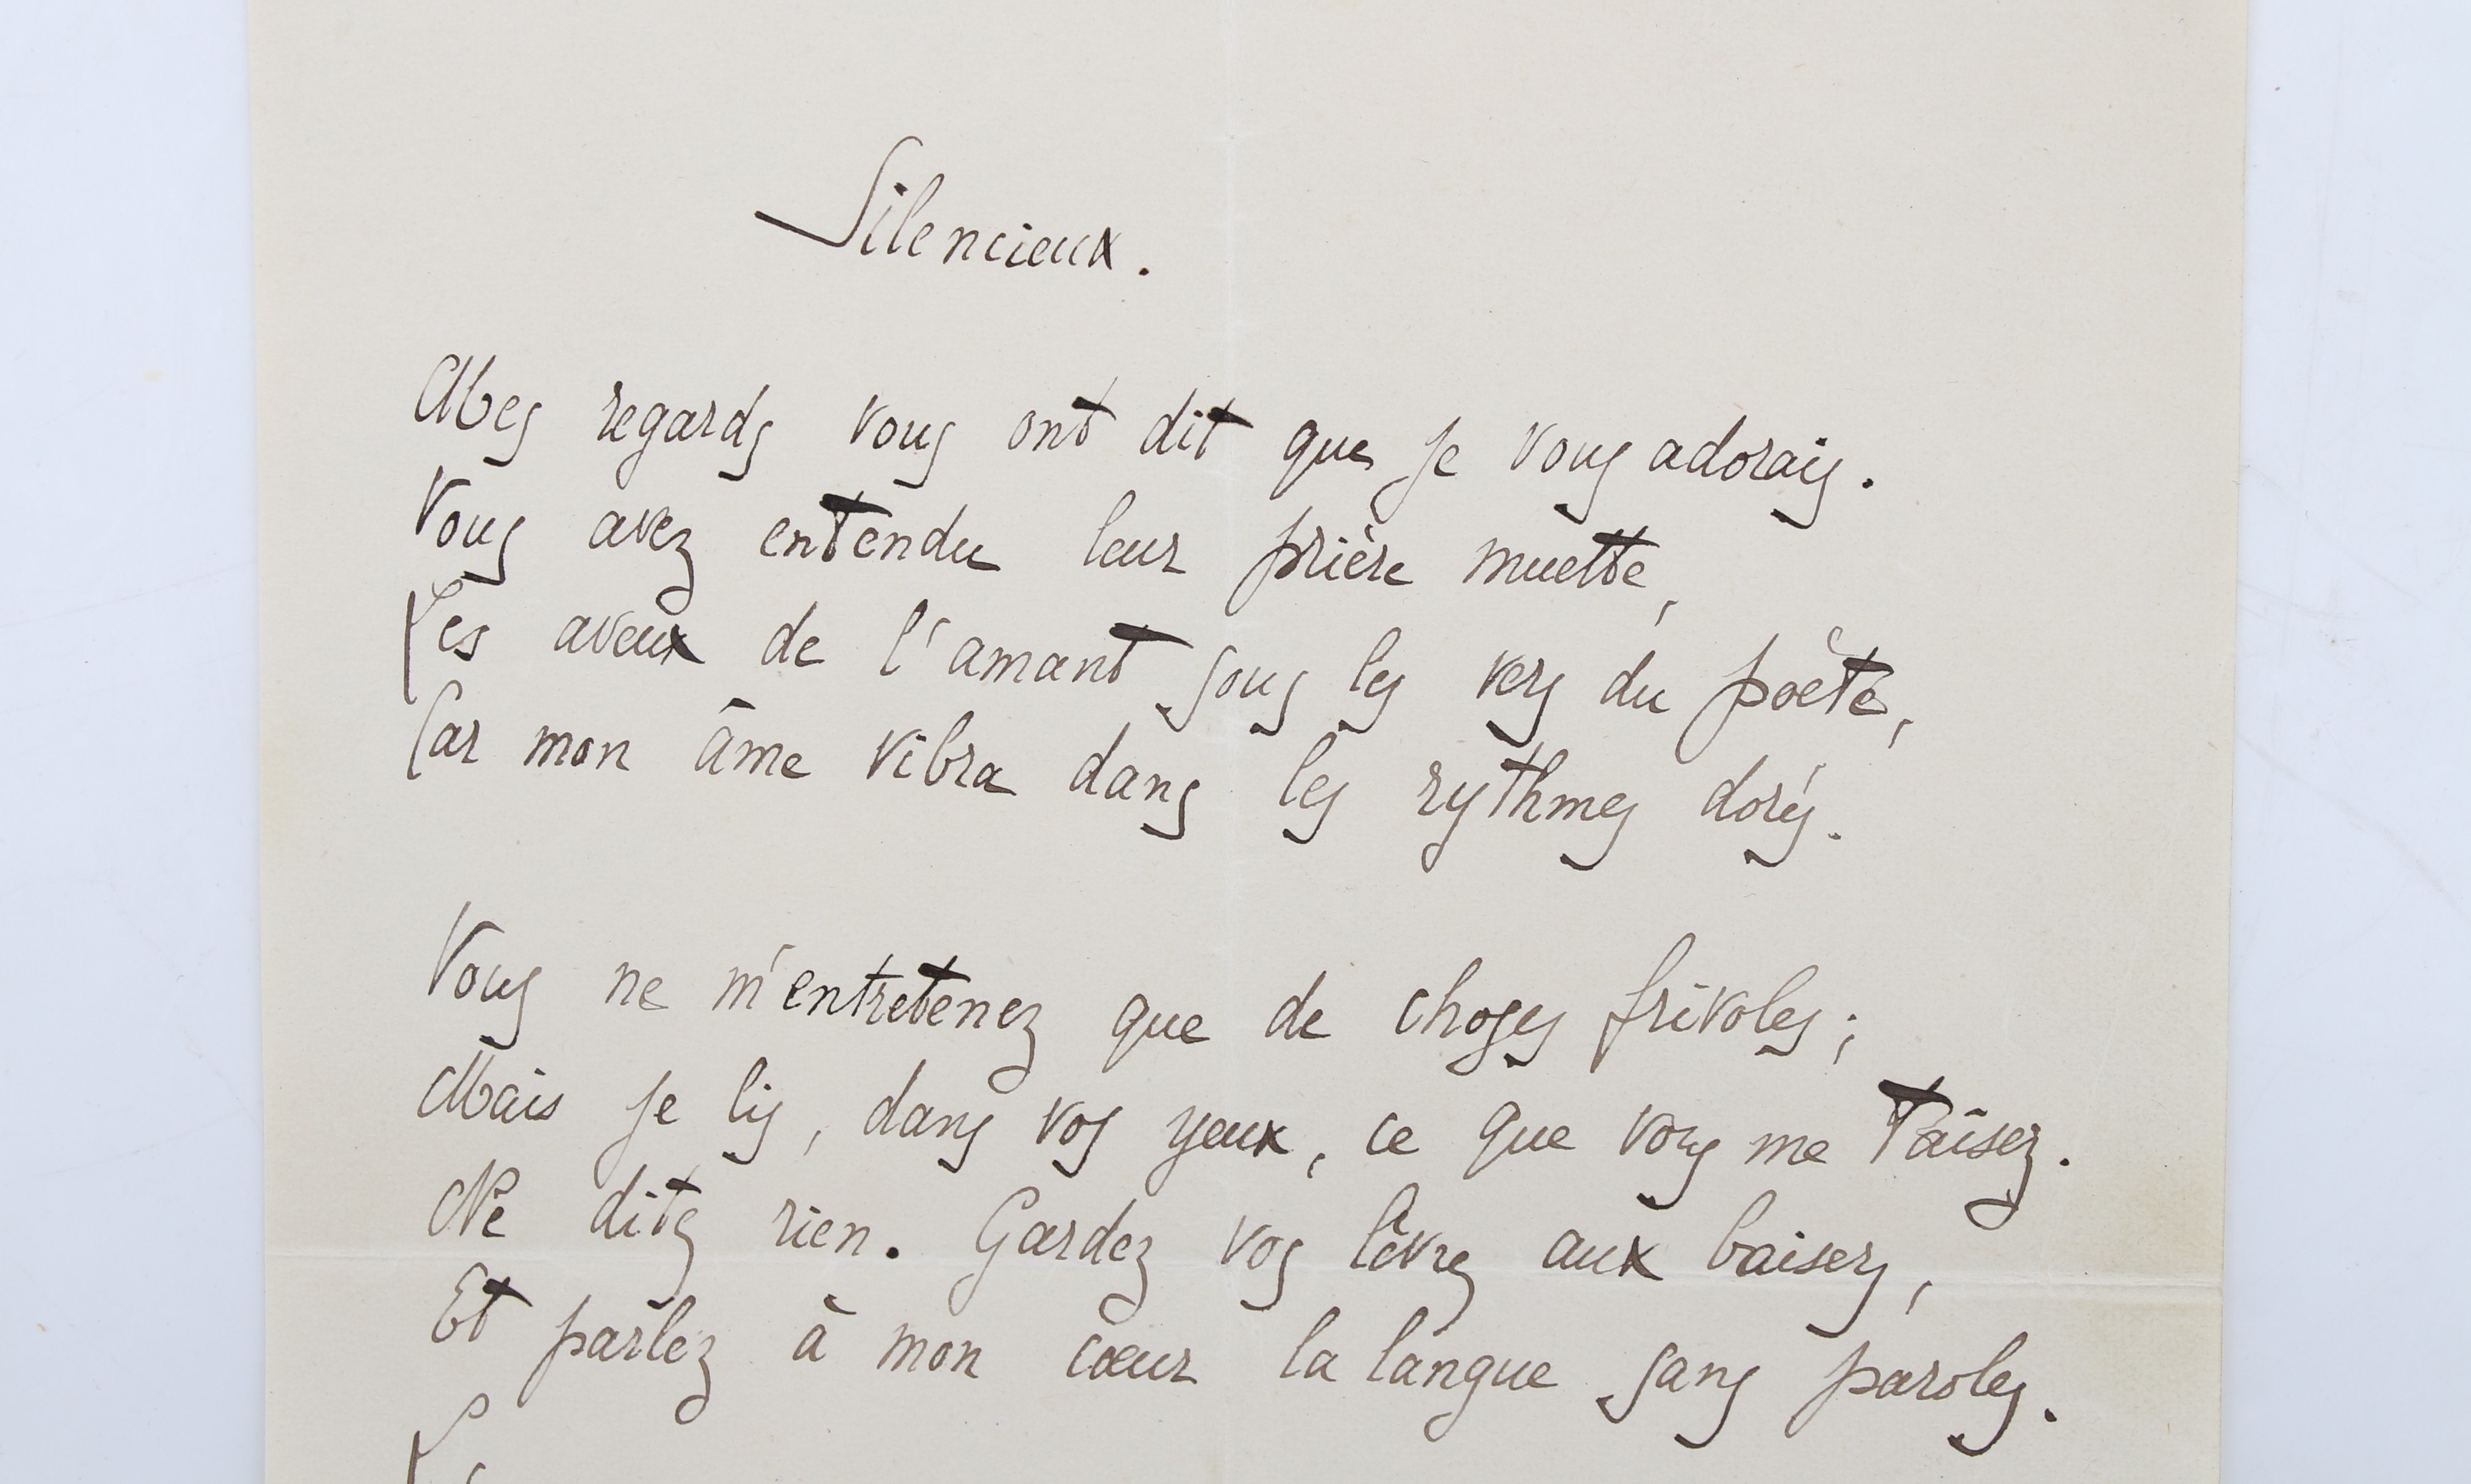 Silencieux.
Mes regards vous ont dit que je vous adorais.
Vous avez entendu leur prière muette,
Les aveux de l'amant sous les vers du poète,
Car mon âme vibra dans les rythmes dorés.
Vous ne m'entretenez que de choses frivoles ;
Mais je lis, dans vos yeux, ce que vous me taisez.
Ne dites rien. Gardez vos lèvres aux baisers,
Et parlez à mon cœur la langue sans paroles.